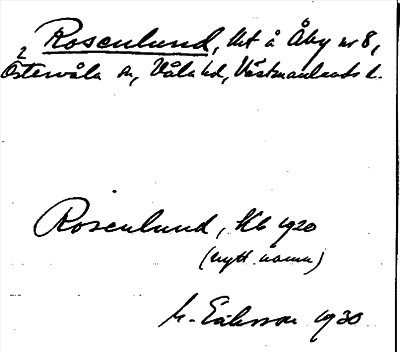 2 Rosenlund, lht å Åby nr 8,
Östervåla sn, Våla hd, Västmanlands l.
Rosenlund, Kb 1920
(nytt namn)
M. Eriksson 1930